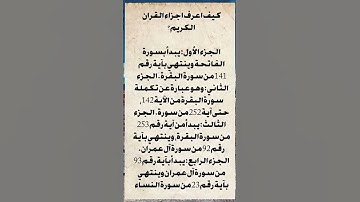 كيف اعرف اجزاء القران
الكريم؟
الجزء الأول: يبدأ بسورة
الفاتحة وينتهي بآية رقم
141 من سورة البقرة. الجزء
الثاني: وهو عبارة عن تكملة
سورة البقرة من الآية 142,
حتى آية 252 من سورة. الجزء
الثالث: يبدأ من آية رقم 253
من سورة البقرة, وينتهي بآية
رقم 92 من سورة آل عمران.
الجزء الرابع: يبدأ بآية رقم 93
من سورة آل عمران وينتهي
بآية رقم 23 من سورة النساء